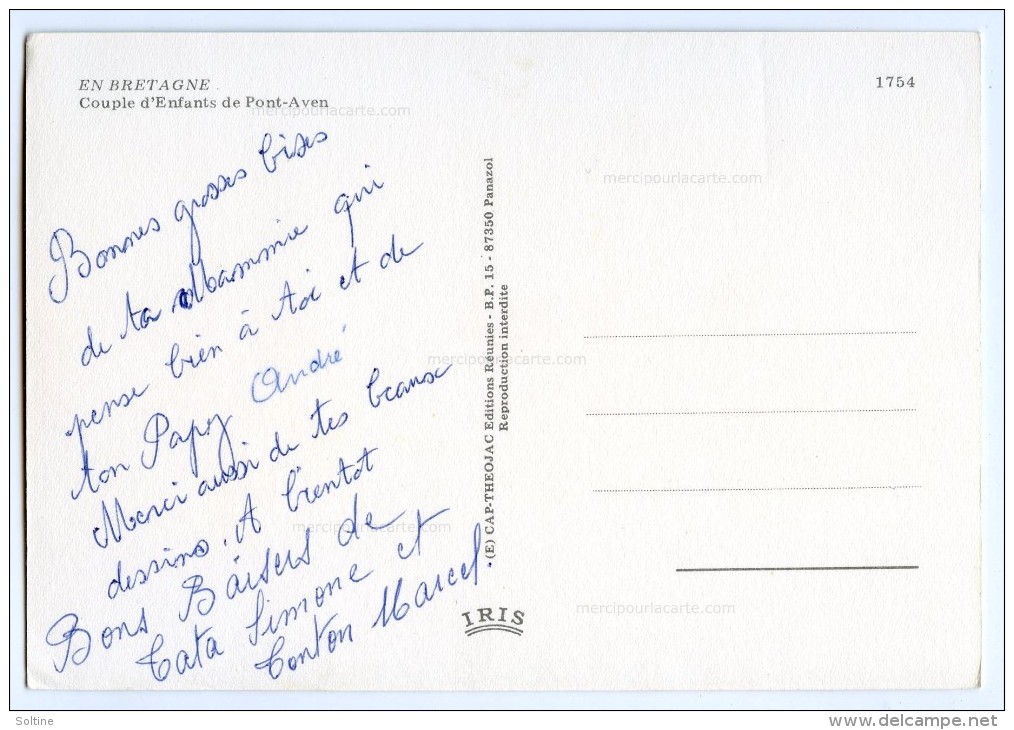 EN BRETAGNE
Couple d'Enfants de Pont-Aven
1754
Bonnes grosses bises
de ta Mammie qui
pense bien à toi et de
ton Papy André
Merci aussi de tes beaux
dessins. A bientot
Bons Baisers de
Tata Simone et
Tonton Marcel
(E) CAP-THEOJAC Editions Réunies - B.P. 15 - 87350 Panazol
Reproduction interdite
IRIS
mercipourlacarte.com
mercipourlacarte.com
mercipourlacarte.com
mercipourlacarte.com
mercipourlacarte.com
Soltine
www.delcampe.net